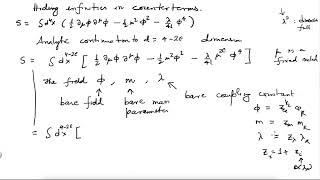 Hiding infinities in counterterms.
S = ∫d⁴x (½ ∂μφ ∂^μφ − ½ m²φ² − λ/4! φ⁴)
Analytic continuation to d = 4−2ε dimension
S = ∫ d^{4−2ε}x [½ ∂μφ ∂^μφ − ½ m²φ² − λ/4! μ^{2ε} φ⁴]
μ is a fixed scale
the field φ, m, λ
bare field bare mass parameter bare coupling constant
φ = Z_φ^{½} φ_R
m = Z_m m_R
λ = Z_λ λ_R
Z_i = 1 +
= ∫d^{4−2ε}x [